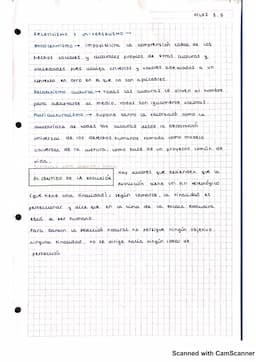 RELATIVISMO Y UNIVERSALISMO →
ETNOCENTRISMO → imposibilita la comprensión cabal de los
hechos sociales y culturales propios de otras culturas y
sociedades pues utiliza criterios y valores adecuados a un
contexto en otro en el que no son aplicables.
RELATIVISMO CULTURAL → todas las culturas le sirven al hombre
para adaptarse al medio, todas son igualmente valiosas.
MULTICULTURALISMO → supone tanto la valoración como la
de todas las culturas desde la declaración
universal de los derechos humanos tomada como modelo
universal de la cultura, como base de un proyecto común de
vida.
EL SENTIDO DE LA EVOLUCIÓN
Hay autores que defienden que la
evolución tiene un fin teleológico
(que tiene una finalidad), según Lamarck, la finalidad es
perfeccionar y dice que en la cima de la escala evolutiva
está el ser humano.
Para Darwin la selección natural no persigue ningún objetivo,
ninguna finalidad, no se dirige hacia ningún ideal de
perfección
Scanned with CamScanner